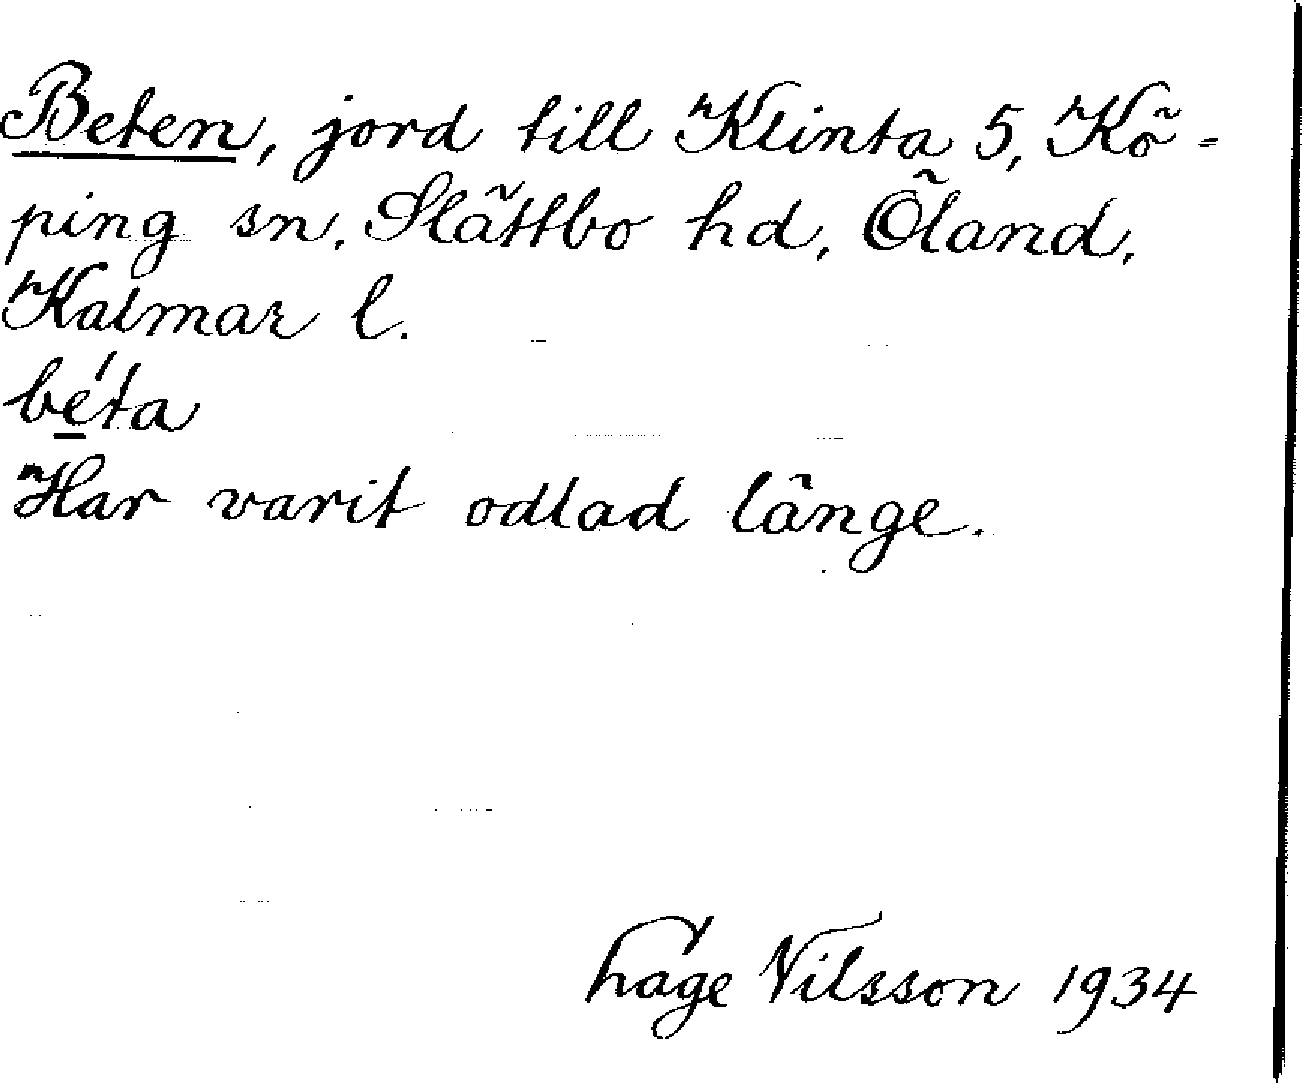 Beten, jord till Klinta 5, Kö-
ping sn, Slättbo hd, Öland,
Kalmar l.
béta
Har varit odlad länge.
Håge Nilsson 1934